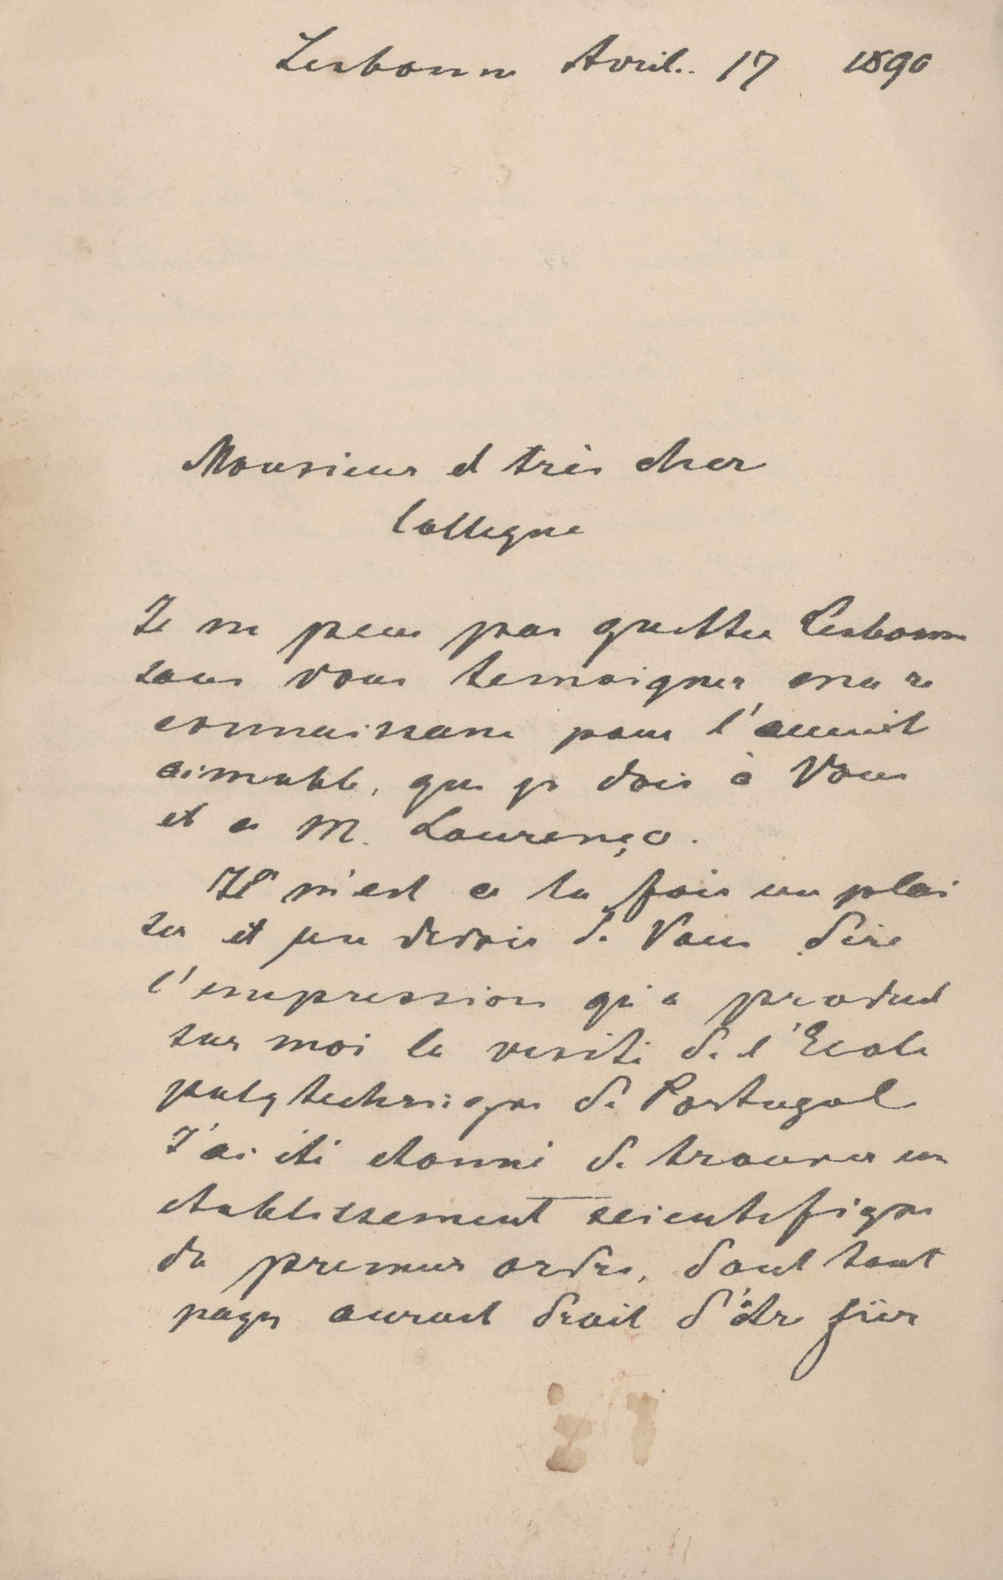 Lisbonne Avril. 17 1890
Monsieur et très cher
Collegue
Je ne peux pas quitter Lisbonne
sans vous temoigner ma re
connaissance pour l'acceuil
aimable, que je dois à Vous
et a M. Lourenço.
Il m'est a la fois un plai
sir et un devoir de Vous dire
l'impression qi a produit
sur moi la visite de l'Ecole
polytechnique de Portugal
J'ai été etonné de trouver un
etablissement scientifique
du premier ordre, dont tout
pays aurait droit d'être fier